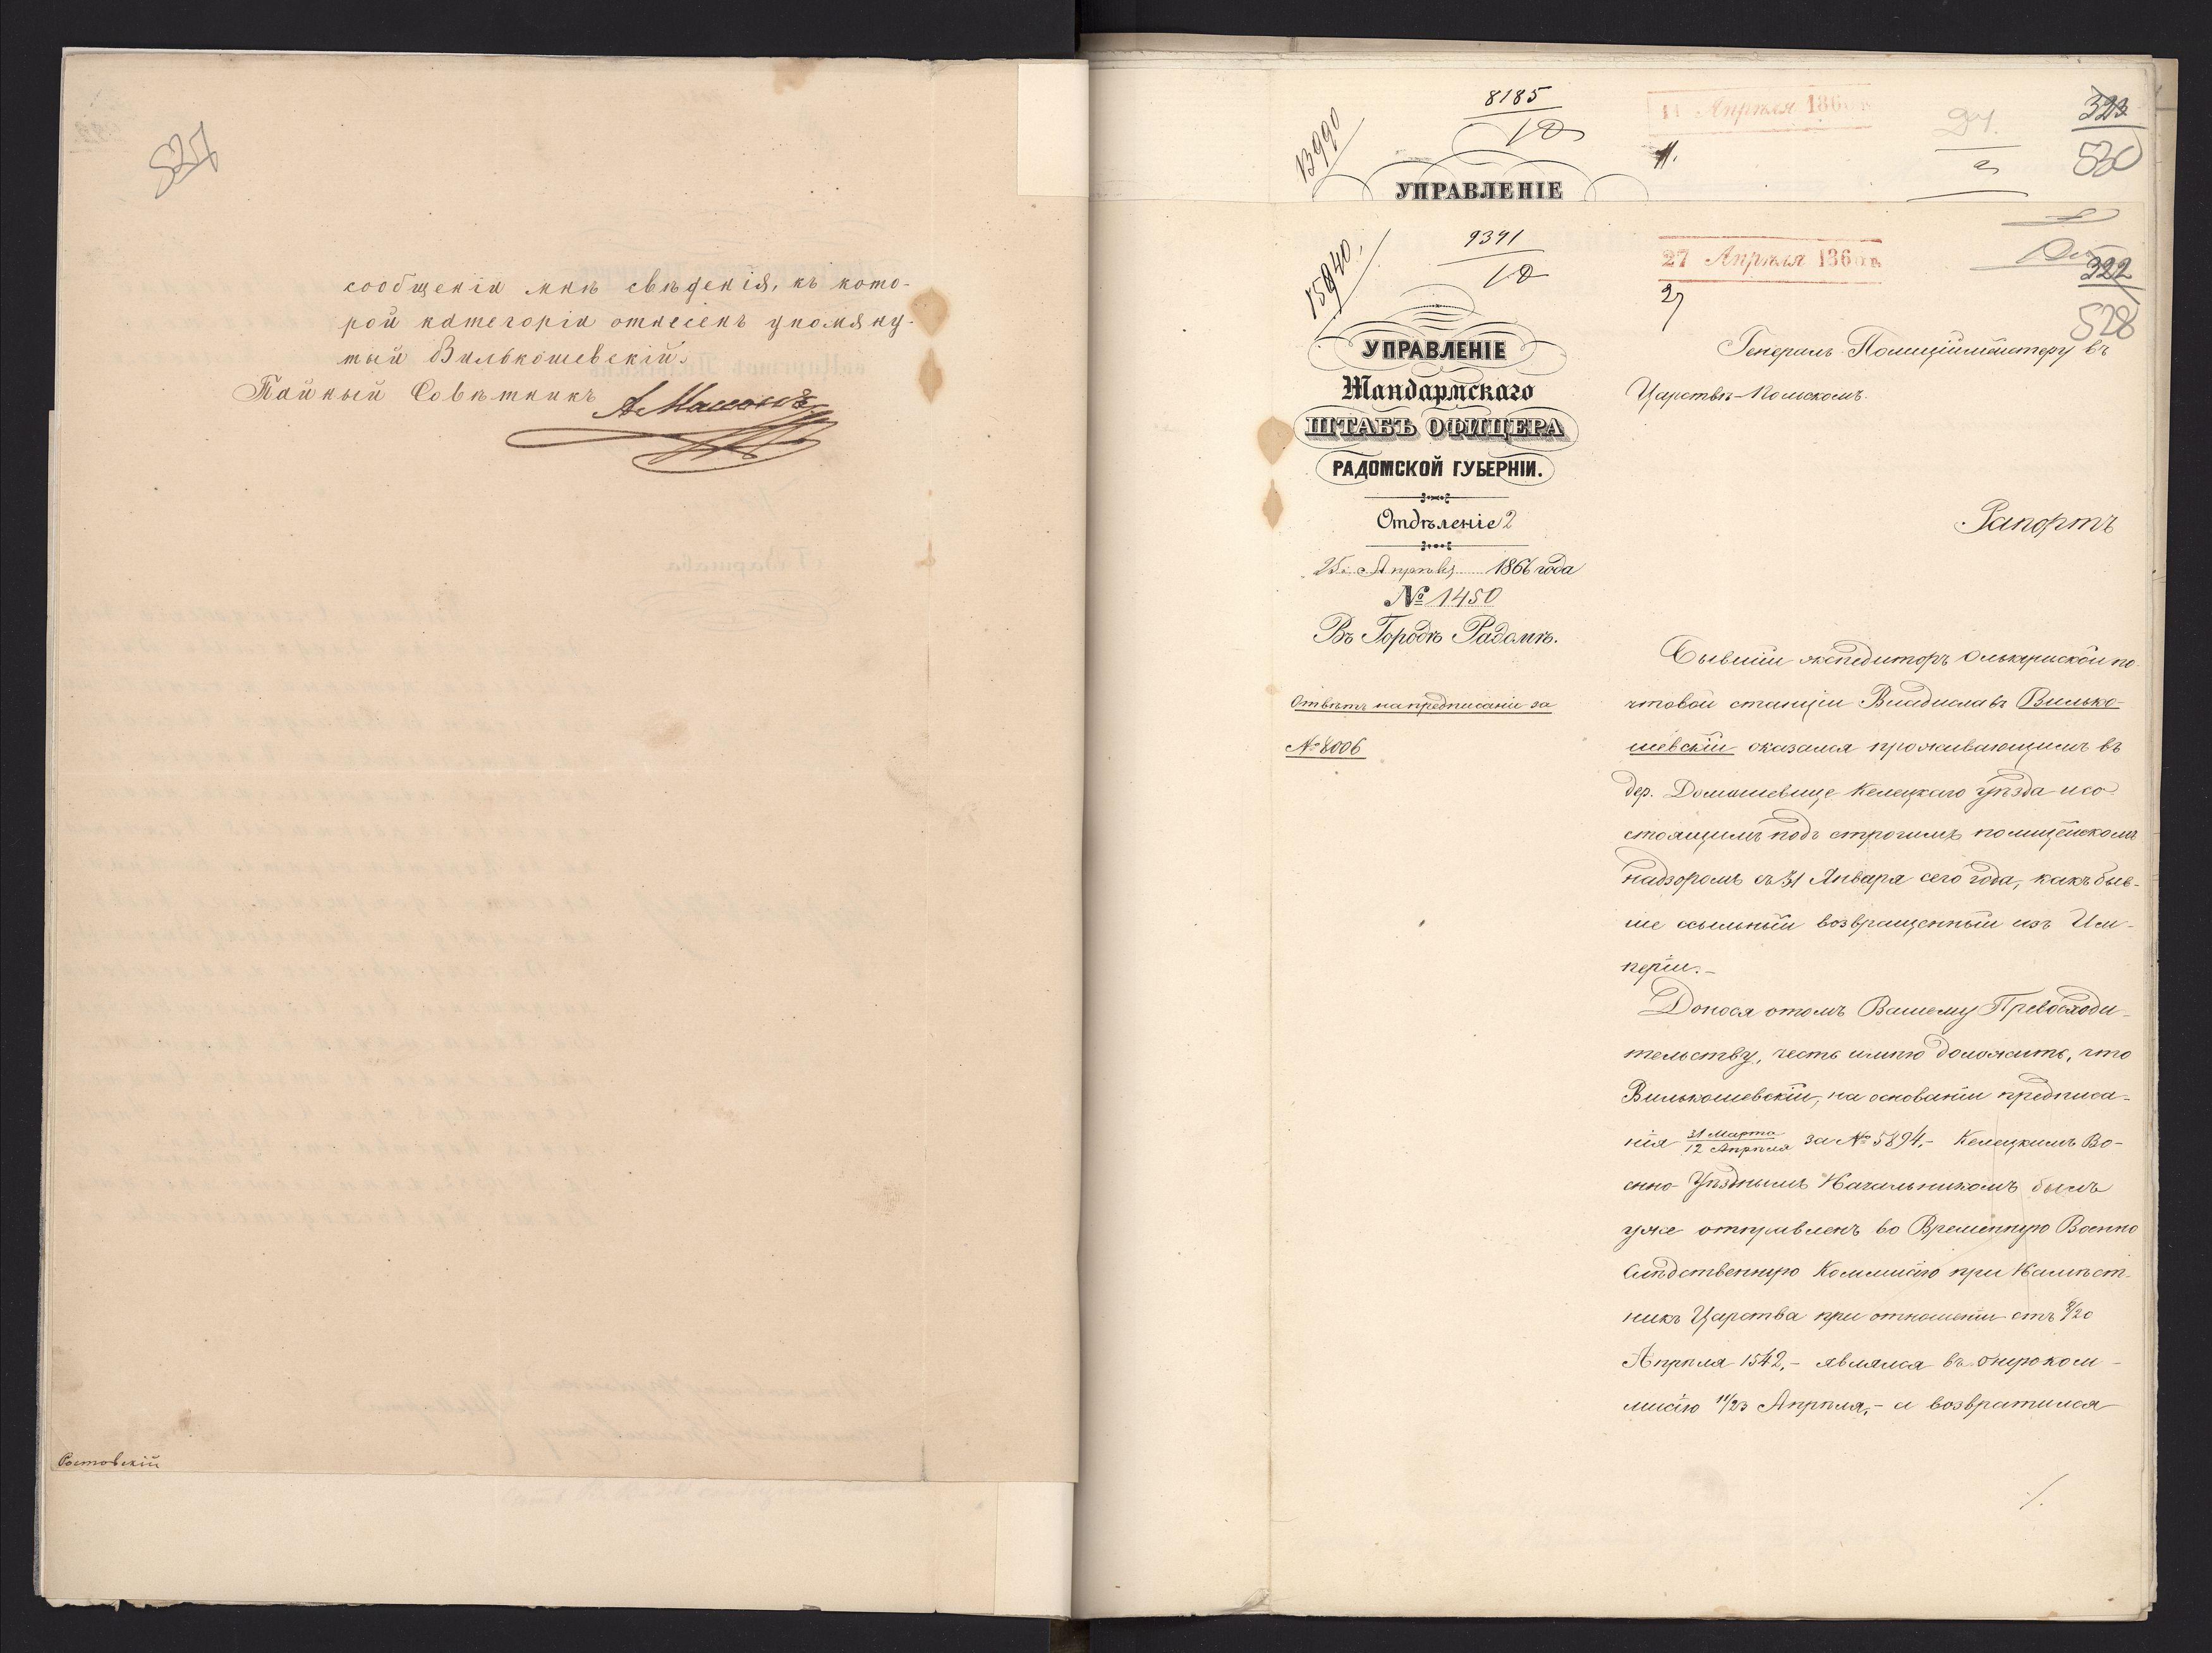 527
сообщенія мнѣ свѣденія, къ кото-
рой категоріи отнесенъ упомяну-
тый Вилькошевскій.
Тайный Совѣтникъ
Ростовскій
13990
8185
10
11 Апрѣля 1866 г.
11.
323
530
УПРАВЛЕНІЕ
15940.
9341
10
27 Апрѣля 1866 г.
27
322
528
УПРАВЛЕНІЕ
Жандармскаго
ШТАБЪ ОФИЦЕРА
РАДОМСКОЙ ГУБЕРНІИ.
Отдѣленіе 2
25 Апрѣля 1866 года
№ 1450
Въ Городѣ Радомѣ.
Отвѣтъ на предписаніе за
№ 8006
Генералъ-Полиціймейстеру въ
Царствѣ-Польскомъ.
Рапортъ
Бывшій экспедиторъ Олькушской по-
чтовой станціи Владиславъ Вилько-
шевскій оказался проживающимъ въ
дер. Домашевице Келецкаго уѣзда и со
стоящимъ подъ строгимъ полицейскомъ
надзоромъ съ 31 Января сего года, какъ быв-
ше ссыльный возвращенный изъ Им-
періи.-
Донося о томъ Вашему Превосходи-
тельству, честь имѣю доложить, что
Вилькошевскій, на основаніи предписа-
нія 31 Марта/12 Апрѣля за № 5894,- Келецкимъ Во-
енно-Уѣзднымъ Начальникомъ былъ
уже отправленъ во Временную Военно
Слѣдственную Коммисію при Намѣст-
никѣ Царства при отношеніи отъ 8/20
Апрѣля 1542,- являлся въ оную ком-
мисію 11/23 Апрѣля,- и возвратился
./.